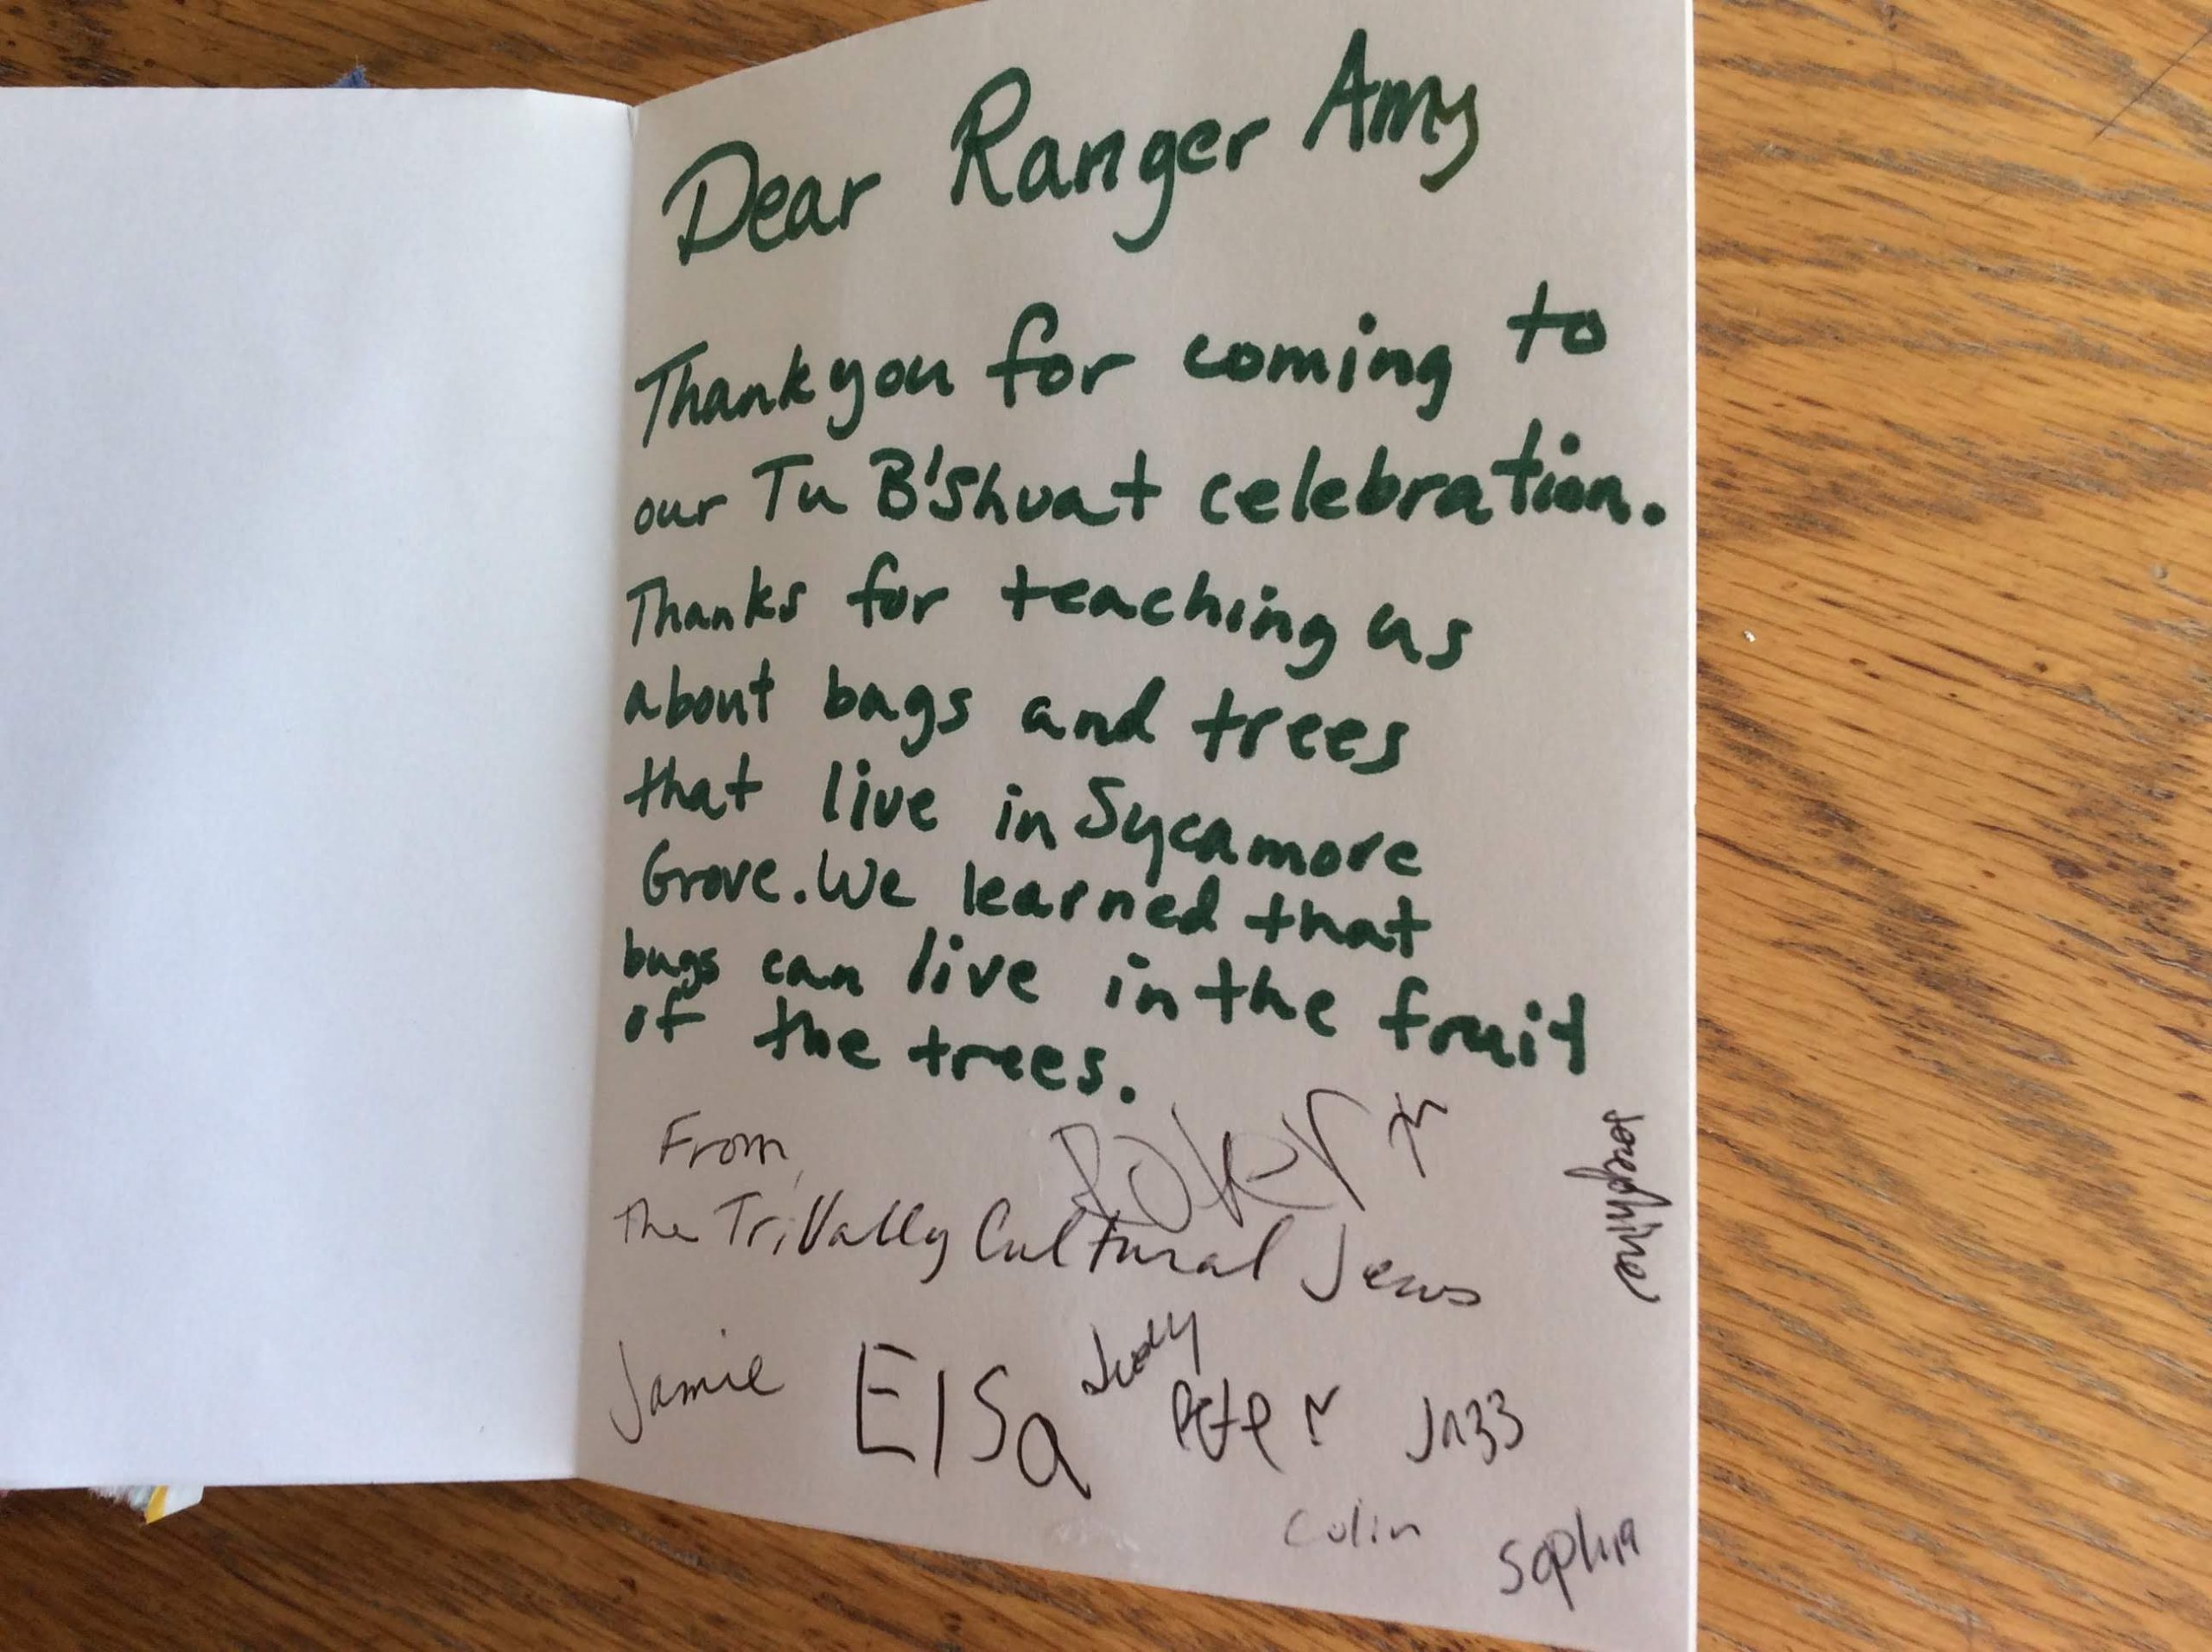 Dear Ranger Amy
Thank you for coming to
our Tu B'Shvat celebration.
Thanks for teaching us
about bugs and trees
that live in Sycamore
Grove. We learned that
bugs can live in the fruit
of the trees.
From
the Tri Vally Cultural Jews
Josephine
Jamie Elsa Judy
Peter Jazz
Colin
Sophia